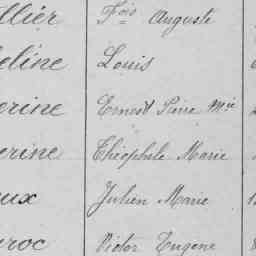 llier Fois Auguste
eline Louis
erine Ernest Pierre Mie
erine Théophile Marie
eux Julien Marie 1
roc Victor Eugène 8